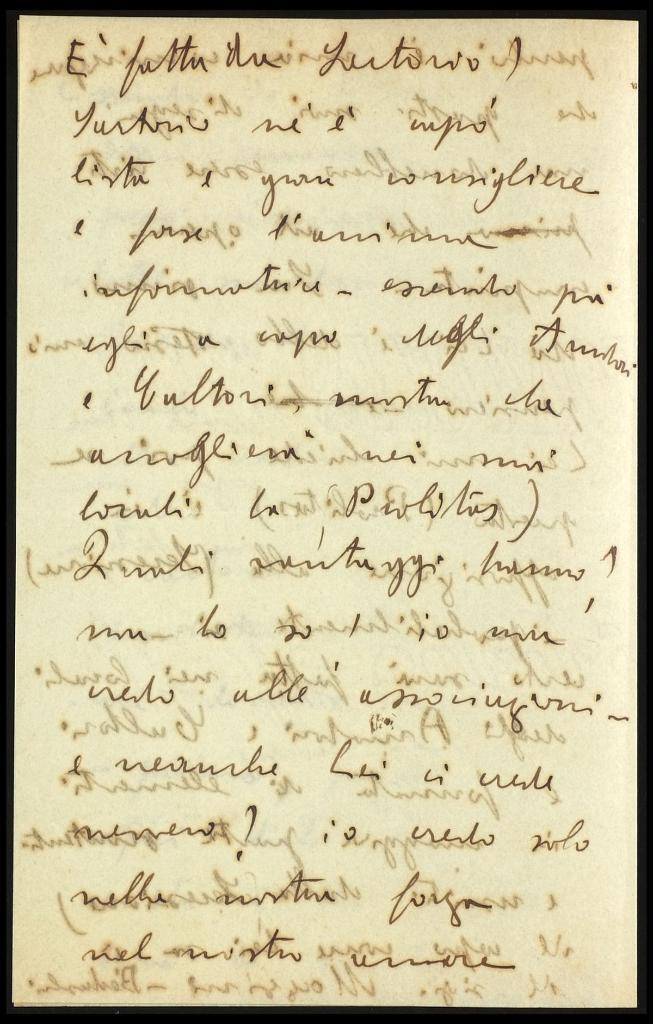 È fatta da Sartorio?
Sartorio ne è capo
lista e gran consigliere
e forse l'anima
informatrice – essendo poi
egli a capo degli Amatori
e Cultori, mostra che
accoglierà nei suoi
locali la (Probitas)
Quali vantaggi hanno?
non lo so! io non
credo alle associazioni –
e neanche Lei ci crede
nevvero? io credo solo
nella nostra forza
nel nostro amore